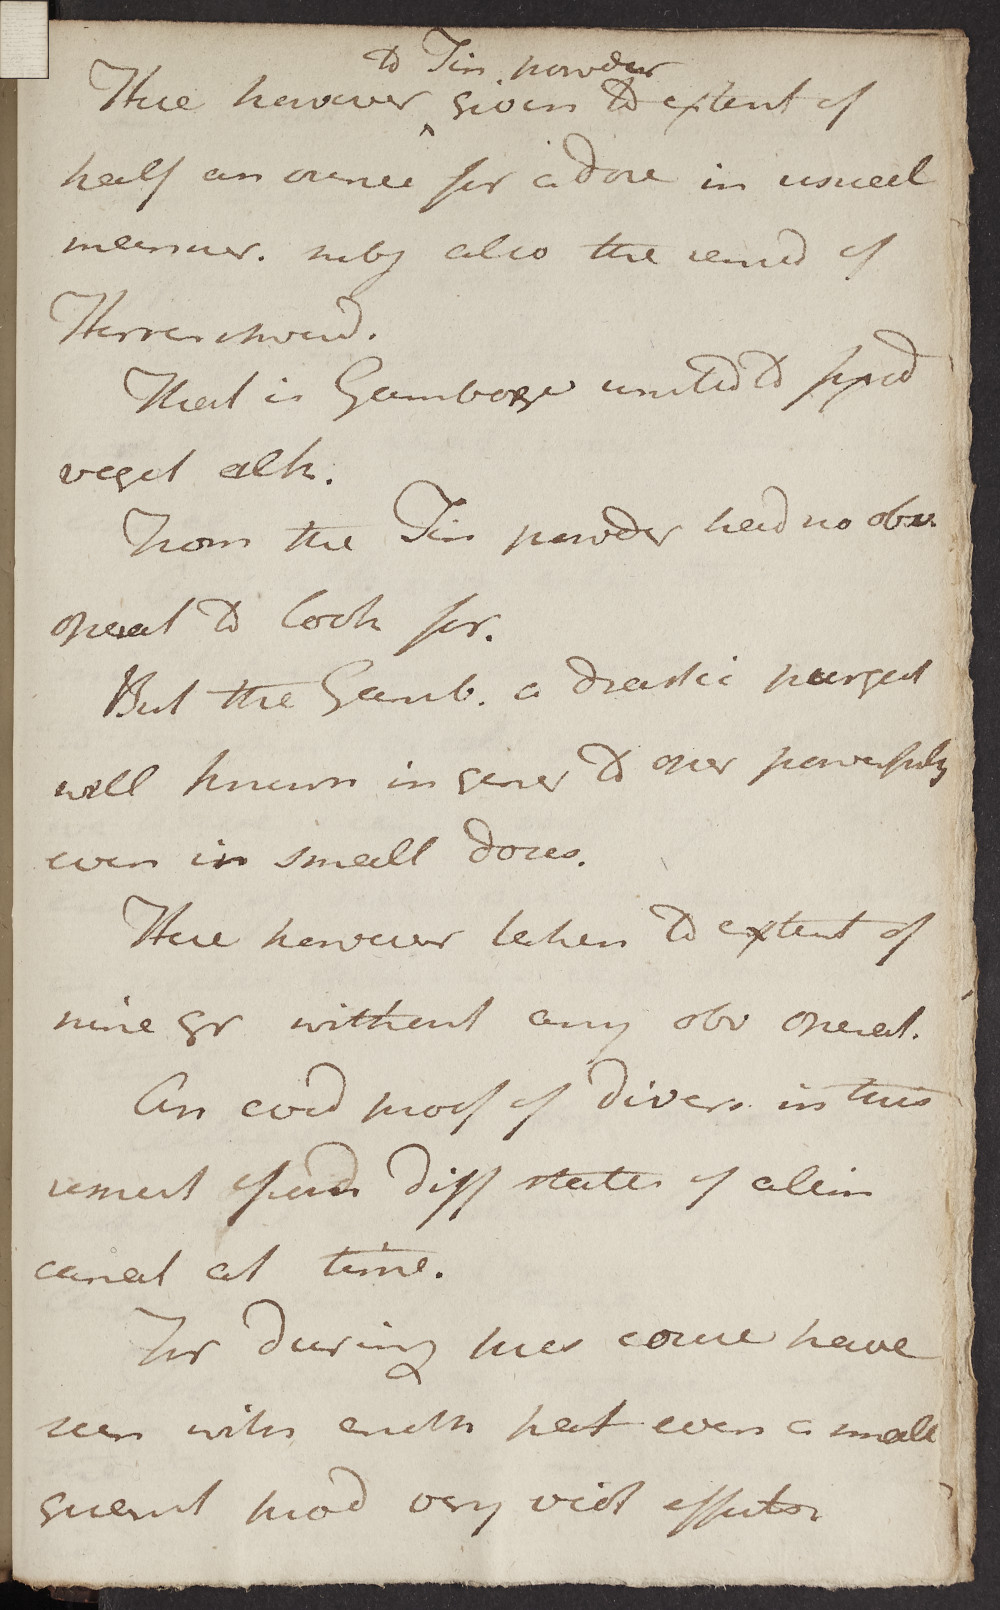 to Tin powder
Here however ^ given to extent of
half an ounce for a dose in usual
manner. subj also the remed of
Herrenchwand.
That is Gamboge united to fixed
veget alk.
From the Tin powder had no obv
operat to look for.
But the Gamb. a drastic purgat
well known in gener to oper powerfuly
even in small doses.
Here however taken to extent of
nine gr without any obv operat.
An evid proof of divers. in this
respect depend diff states of alim
canal at time.
For during pres course have
seen with anoth pat even a small
quant prod very viol effects